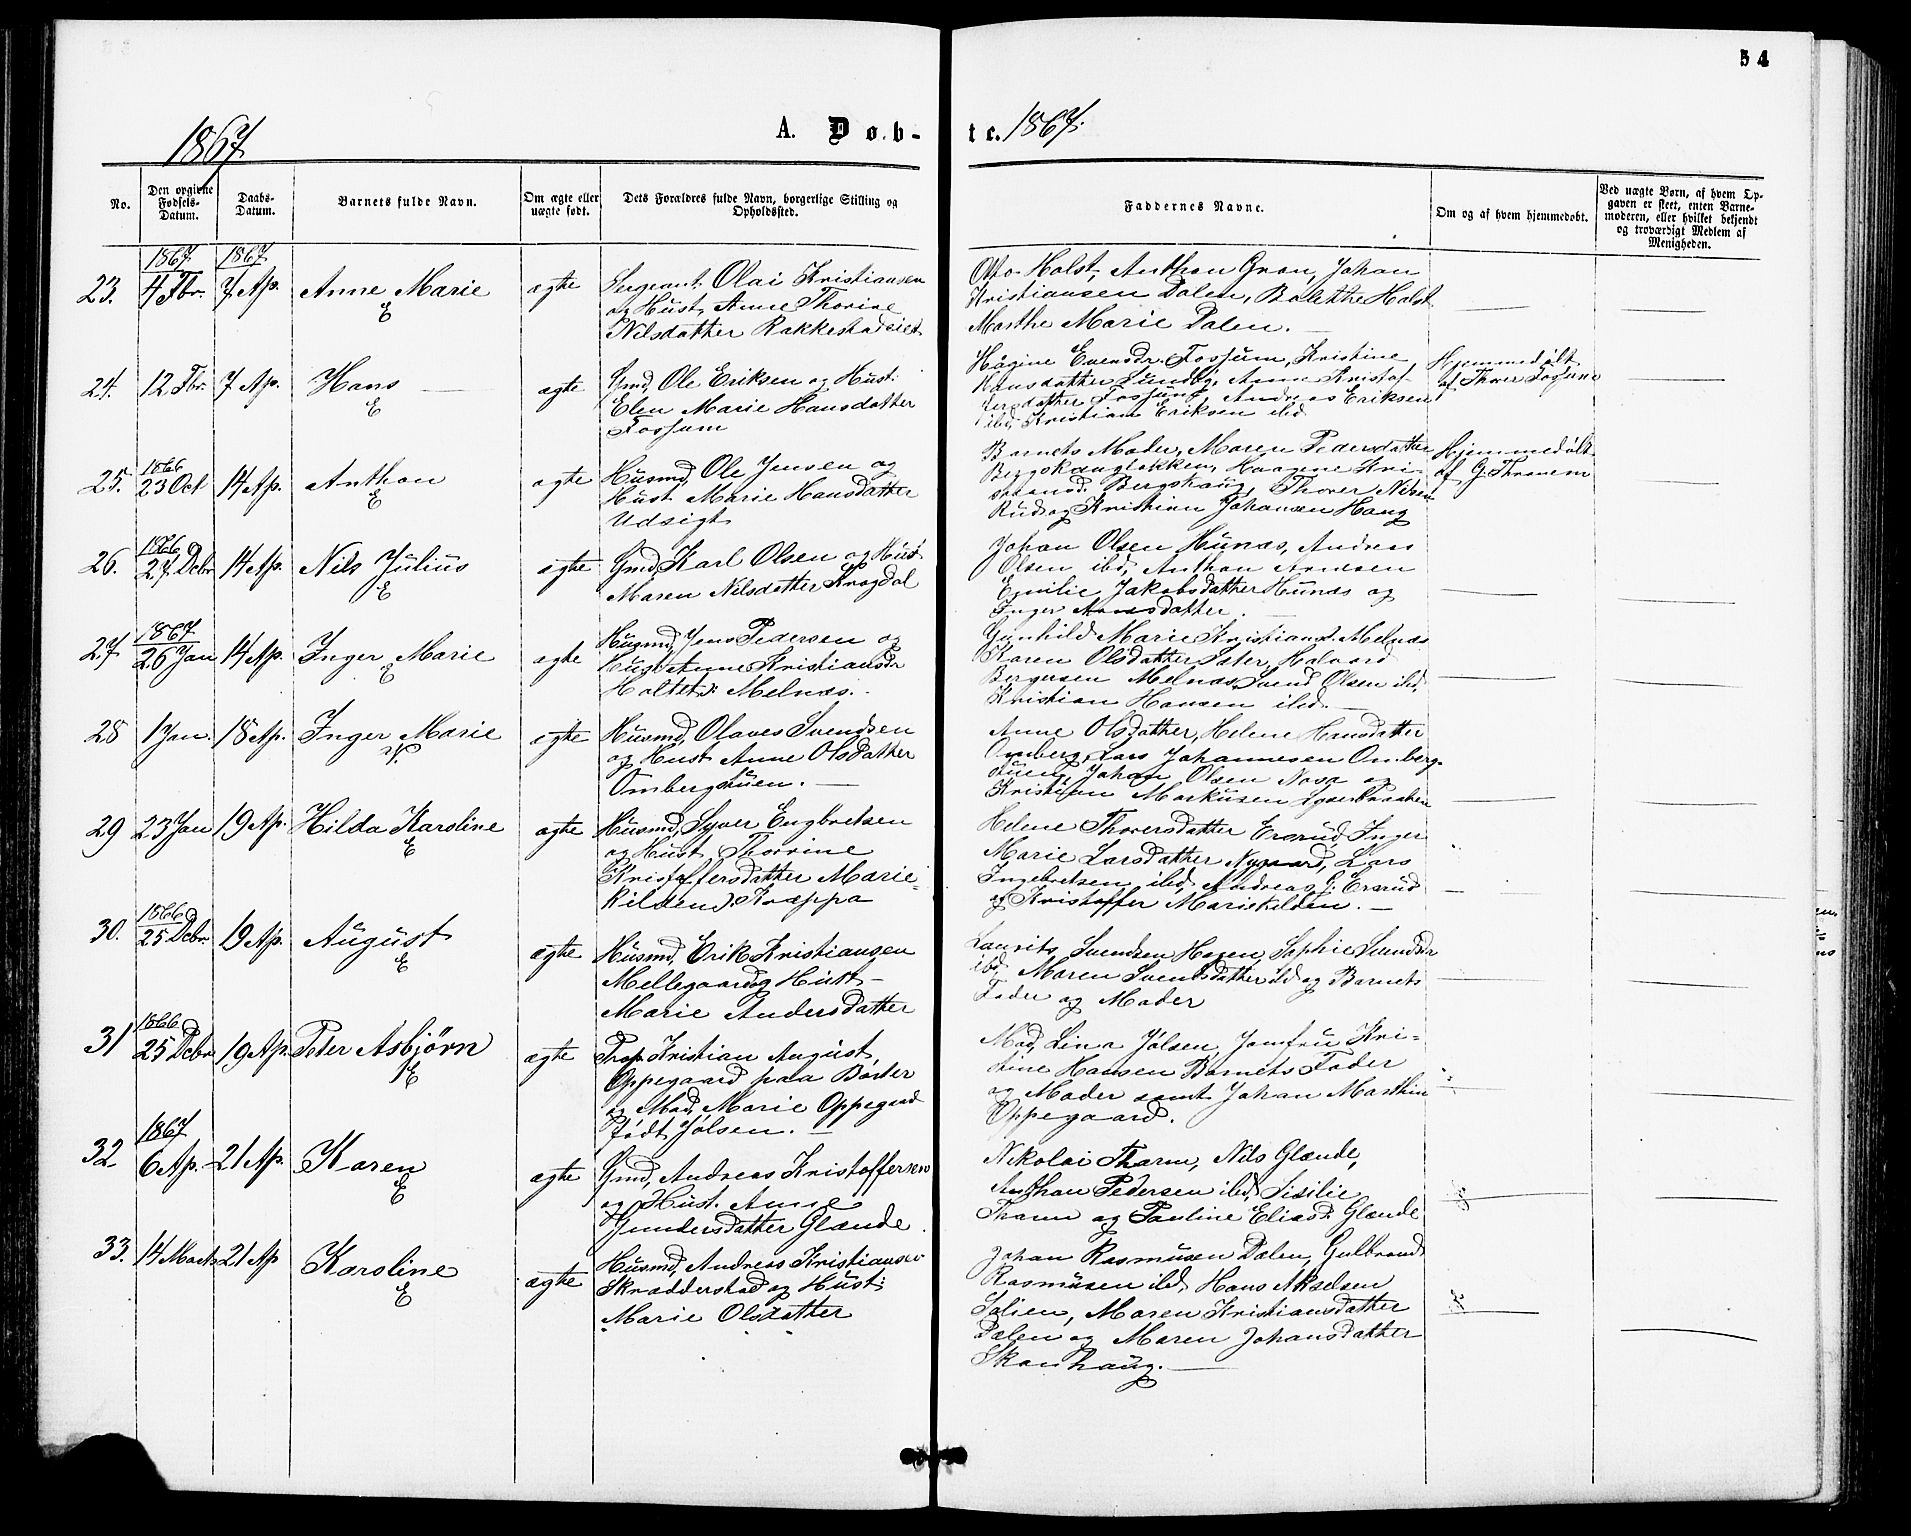 54
1867
A. Døb-
te. 1867.
No.
Den opgivne Fødsels-Datum.
Daabs-Datum.
Barnets fulde Navn.
Om ægte eller uægte født.
Dets Forældres fulde Navn, borgerlige Stilling og Opholdssted.
Faddernes Navne.
Om og af hvem hjemmedøbt.
Ved uægte Børn, af hvem Opgaven er skeet, enten Barnemoderen, eller hvilket bekjendt og troværdigt Medlem af Menigheden.
1867 1867
23. 4 Fbr. 7 Ap. Anne Marie ægte
E
Sergeant Olai Kristiansen
og Hust. Anne Thorine
Nilsdatter Rakkestadeiet
Otto Holst, Anthon Gran, Johan
Kristiansen Dalen, Bolette Holst
Marthe Marie Dalen.
24. 12 Fbr. 7 Ap. Hans ægte
E
Gmd. Ole Eriksen og Hust.
Elen Marie Hansdatter
Fossum
Hågine Evensdr. Fossum, Kristine
Hansdatter Lundby, Anne Kristof-
fersdatter Fossum, Andreas Eriksen
ibd. Kristian Eriksen ibd
Hjemmedøbt
af Thorer Fossum
1866
25. 23 Oct 14 Ap. Anthon ægte
E
Husmd. Ole Jensen og
Hust. Marie Hansdatter
Udsigt
Barnets Moder, Maren Pedersdatter
Bergskaugløkken, Haagene Kri-
stiansd. Bergskaug, Thorer Nilsen
Rud og Kristian Johansen Haug
Hjemmedøbt
af G. Thranem
1866
26. 27 Dcbr. 14 Ap. Nils Julius ægte
E
Gmd. Karl Olsen og Hust
Maren Nilsdatter Krogdal
Johan Olsen Hunæs, Andreas
Olsen ibd, Anthon Arnesen
Emilie Jakobsdatter Hunæs og
Inger Arnesdatter.
1867
27 26 Jan 14 Ap. Inger Marie ægte
E
Husmd. Jens Pedersen og
Hust. Anne Kristiansdr
Holtet u. Melnæs.
Gunhild Marie Kristiansd. Melnæs
Karen Olsdatter Sater, Halvard
Bergersen Melnæs, Svend Olsen ibd,
Kristian Hansen ibd.
28 1 Jan. 18 Ap. Inger Marie ægte
Husmd. Olaves Svendsen
og Hust. Anne Olsdatter
Ombergstuen.
Anne Olsdatter, Helene Hansdatter
Omberg, Lars Johannesen Omberg-
stuen, Johan Olsen Nasa og
Kristian Markusen
29 23 Jan 19 Ap. Hilda Karoline ægte
E
Husmd. Syver Engbretsen
og Hust. Thorine
Kristoffersdatter Marie-
kilden u. Krappa
Helene Thorersdatter Ersrud, Inger
Marie Larsdatter Nygaard, Lars
Ingebretsen ibd, Andreas G. Ersrud
og Kristoffer Mariekilden.
1866
30. 25 Dcbr. 19 Ap. August ægte
E
Husmd. Erik Kristiansen
Mellegaard og Hust
Marie Andersdatter
Laurits Svendsen Hagen, Sophie Svendsdr
ibd, Maren Svendsdatter ibd og Barnets
Fader og Moder
1866
31 25 Dcbr. 19 Ap. Peter Asbjørn ægte
E
Prop. Kristian August
Oppegaard paa Børter
og Mad. Marie Oppegaard
født Jølsen.
Mad. Lina Jølsen, Jomfru Kri-
stine Hansen Barnets Fader
og Moder samt Johan Marthin
Oppegaard.
1867
32 6 Ap. 21 Ap. Karen ægte
E
Gmd. Andreas Kristoffersen
og Hust. Anne
Gundersdatter Glænde
Nikolai Tharm, Nils Glænde,
Anthon Pedersen ibd, Sisilie
Tharm og Pauline Eliasd. Glænde
33. 14 Marts 21 Ap Karoline ægte
E
Husmd. Andreas Kristiansen
Skrædderstad og Hust.
Marie Olsdatter
Johan Rasmusen Dalen, Gulbrand
Rasmusen ibd, Hans Akselsen
Solien, Maren Kristiansdatter
Dalen og Maren Johansdatter
Skonhaug.